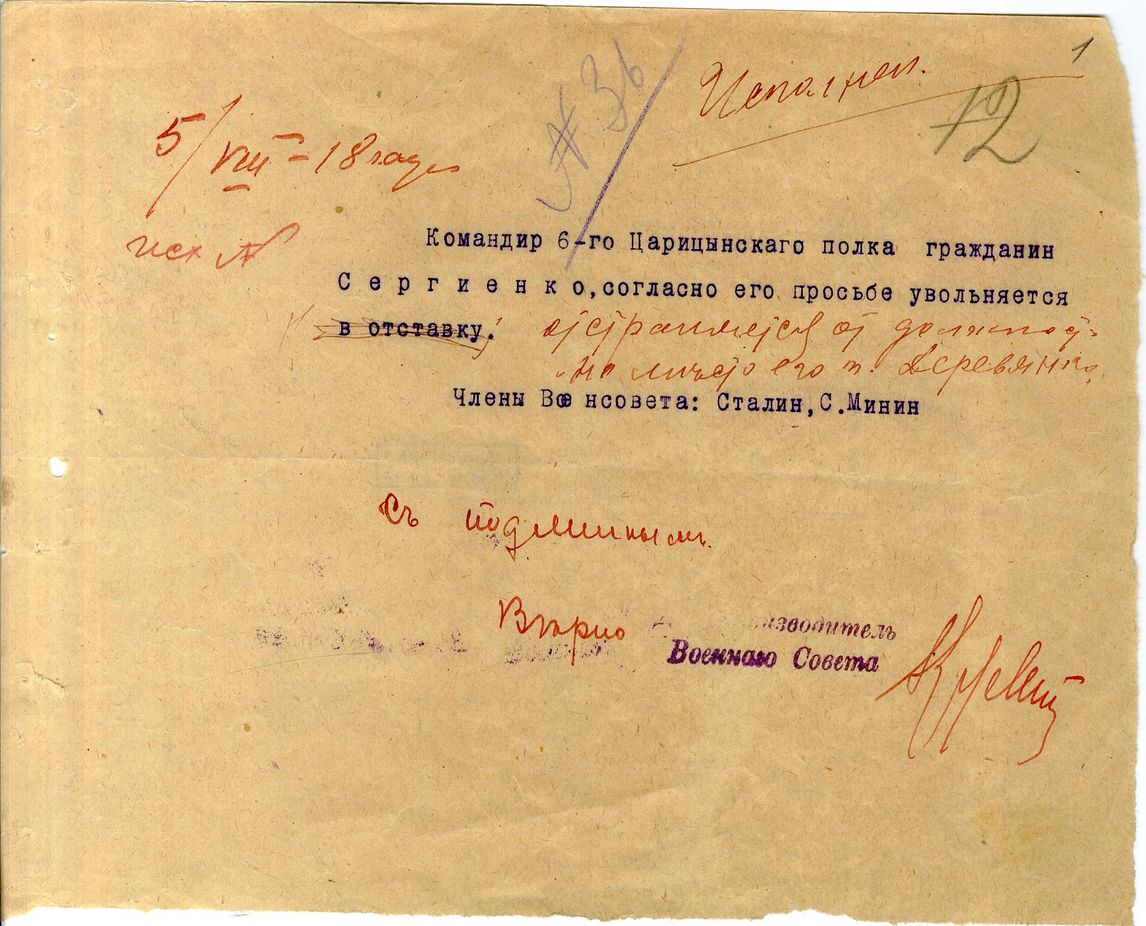 1
№ 36
Исполнен.
12
5/VIII – 18 года
исх №
Командир 6-го Царицынскаго полка гражданин
Сергиенко, согласно его просьбе увольняется
в отставку. отстраняется от должност
на место его т. Деревянко
Члены Военсовета: Сталин, С.Минин
Съ подлинным
Верно изводитель
Военнаго Совета